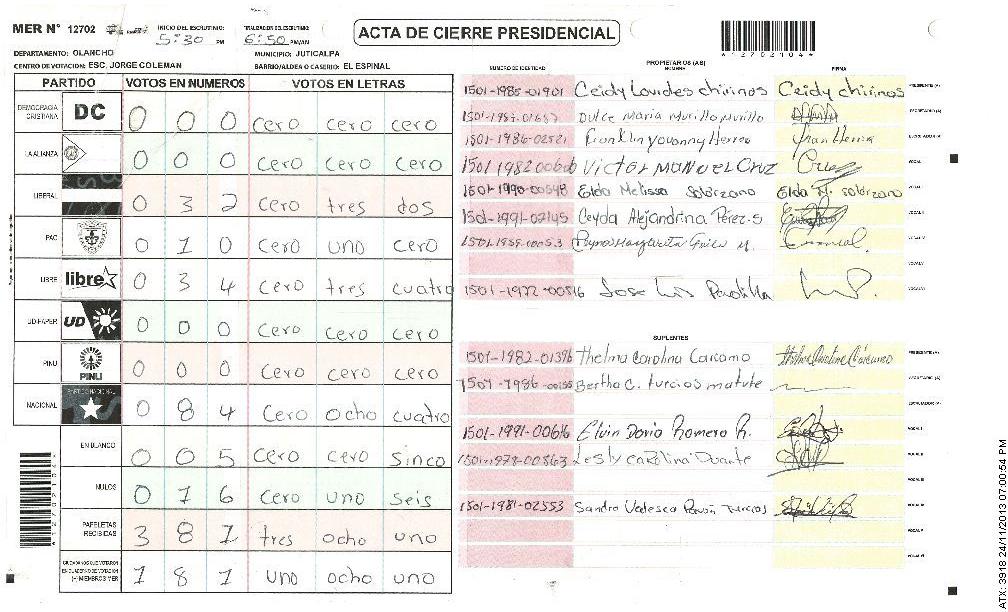 MER N° 12702
INICIO DEL ESCRUTINIO: 5:30 PM
FINALIZACION DEL ESCRUTINIO: 6:50 PM/AM
ACTA DE CIERRE PRESIDENCIAL
*12702104*
DEPARTAMENTO: OLANCHO
MUNICIPIO: JUTICALPA
CENTRO DE VOTACION: ESC. JORGE COLEMAN
BARRIO/ALDEA O CASERIO: EL ESPINAL
PARTIDO VOTOS EN NUMEROS VOTOS EN LETRAS
DEMOCRACIA CRISTIANA DC 0 0 0 cero cero cero
LA ALIANZA 0 0 0 cero cero cero
LIBERAL 0 3 2 cero tres dos
PAC 0 1 0 cero uno cero
LIBRE libre 0 3 4 cero tres cuatro
UD/FAPER UD 0 0 0 cero cero cero
PINU PINU 0 0 0 cero cero cero
NACIONAL PARTIDO NACIONAL 0 8 4 cero ocho cuatro
EN BLANCO 0 0 5 cero cero sinco
NULOS 0 1 6 cero uno seis
PAPELETAS RECIBIDAS 3 8 1 tres ocho uno
CIUDADANOS QUE VOTARON EN CUADERNO DE VOTACION (+) MIEMBROS MER 1 8 1 uno ocho uno
NUMERO DE IDENTIDAD PROPIETARIOS (AS) NOMBRE FIRMA
1501-1985-01901 Ceidy Lourdes chirinos Ceidy chirinos PRESIDENTE (A)
Dulce Maria Murillo Murillo SECRETARIO (A)
1501-1986-02521 Franklin yovanny Herrera Fran Herrera ESCRUTADOR (A)
Victor MANUEL CRUZ Cruz VOCAL I
1501-1990-00548 Elda Melissa Solorzano Elda M. solorzano VOCAL II
1501-1991-02145 Ceyda Alejandrina Pérez.s VOCAL III
1501-1959-00053 VOCAL IV
VOCAL V
1501-1972-00516 Jose Luis Padilla VOCAL VI
SUPLENTES
1501-1982-01396 Thelma Carolina Carcamo Thelma Carolina Cárcamo PRESIDENTE (A)
1501-1986-00155 Bertha C. turcios matute SECRETARIO (A)
ESCRUTADOR (A)
1501-1991-00616 Elvin Dario Romero R. VOCAL I
1501-1979-00563 Lesly carolina Duarte VOCAL II
VOCAL III
1501-1981-02553 Sandra Valesca Pavon Turcios VOCAL IV
VOCAL V
VOCAL VI
ATX: 3918 24/11/2013 07:00:54 PM